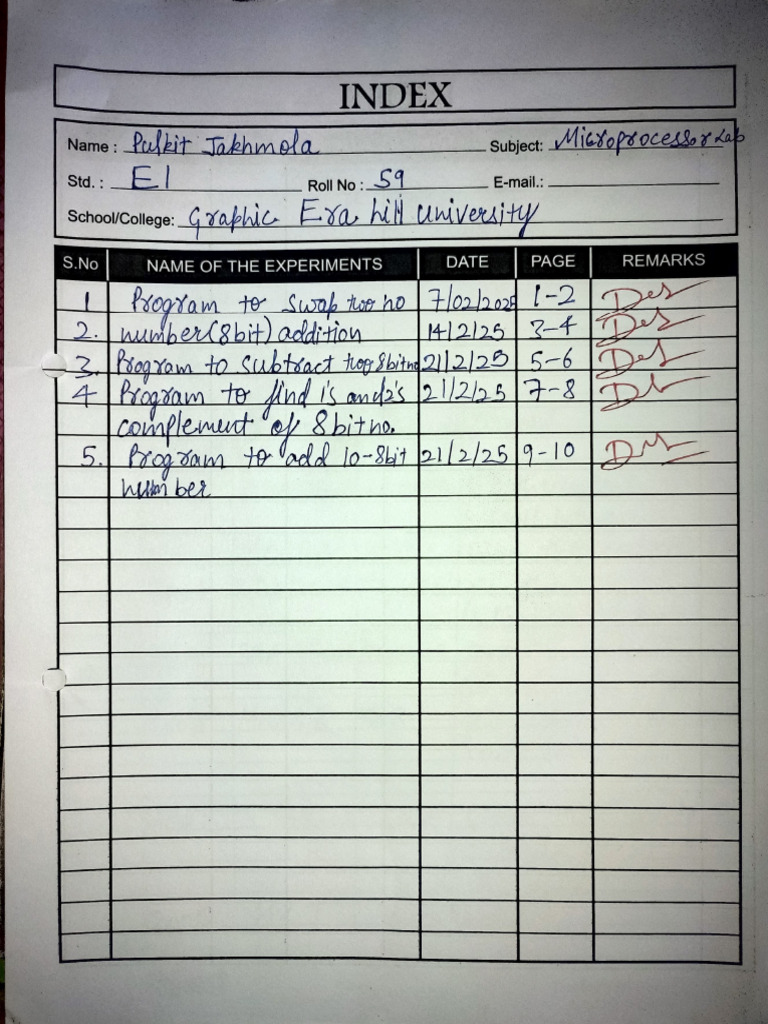 INDEX
Name : Pulkit Jakhmola Subject: Microprocessor Lab
Std. : E1 Roll No : 59 E-mail.:
School/College: Graphic Era hill University
S.No NAME OF THE EXPERIMENTS DATE PAGE REMARKS
1 Program to swap two no 7/02/2025 1-2
2. number(8bit) addition 14/2/25 3-4
3. Program to subtract two 8bit no 21/2/25 5-6
4 Program to find 1's and 2's 21/2/25 7-8
complement of 8 bit no.
5. Program to add 10-8bit 21/2/25 9-10
number